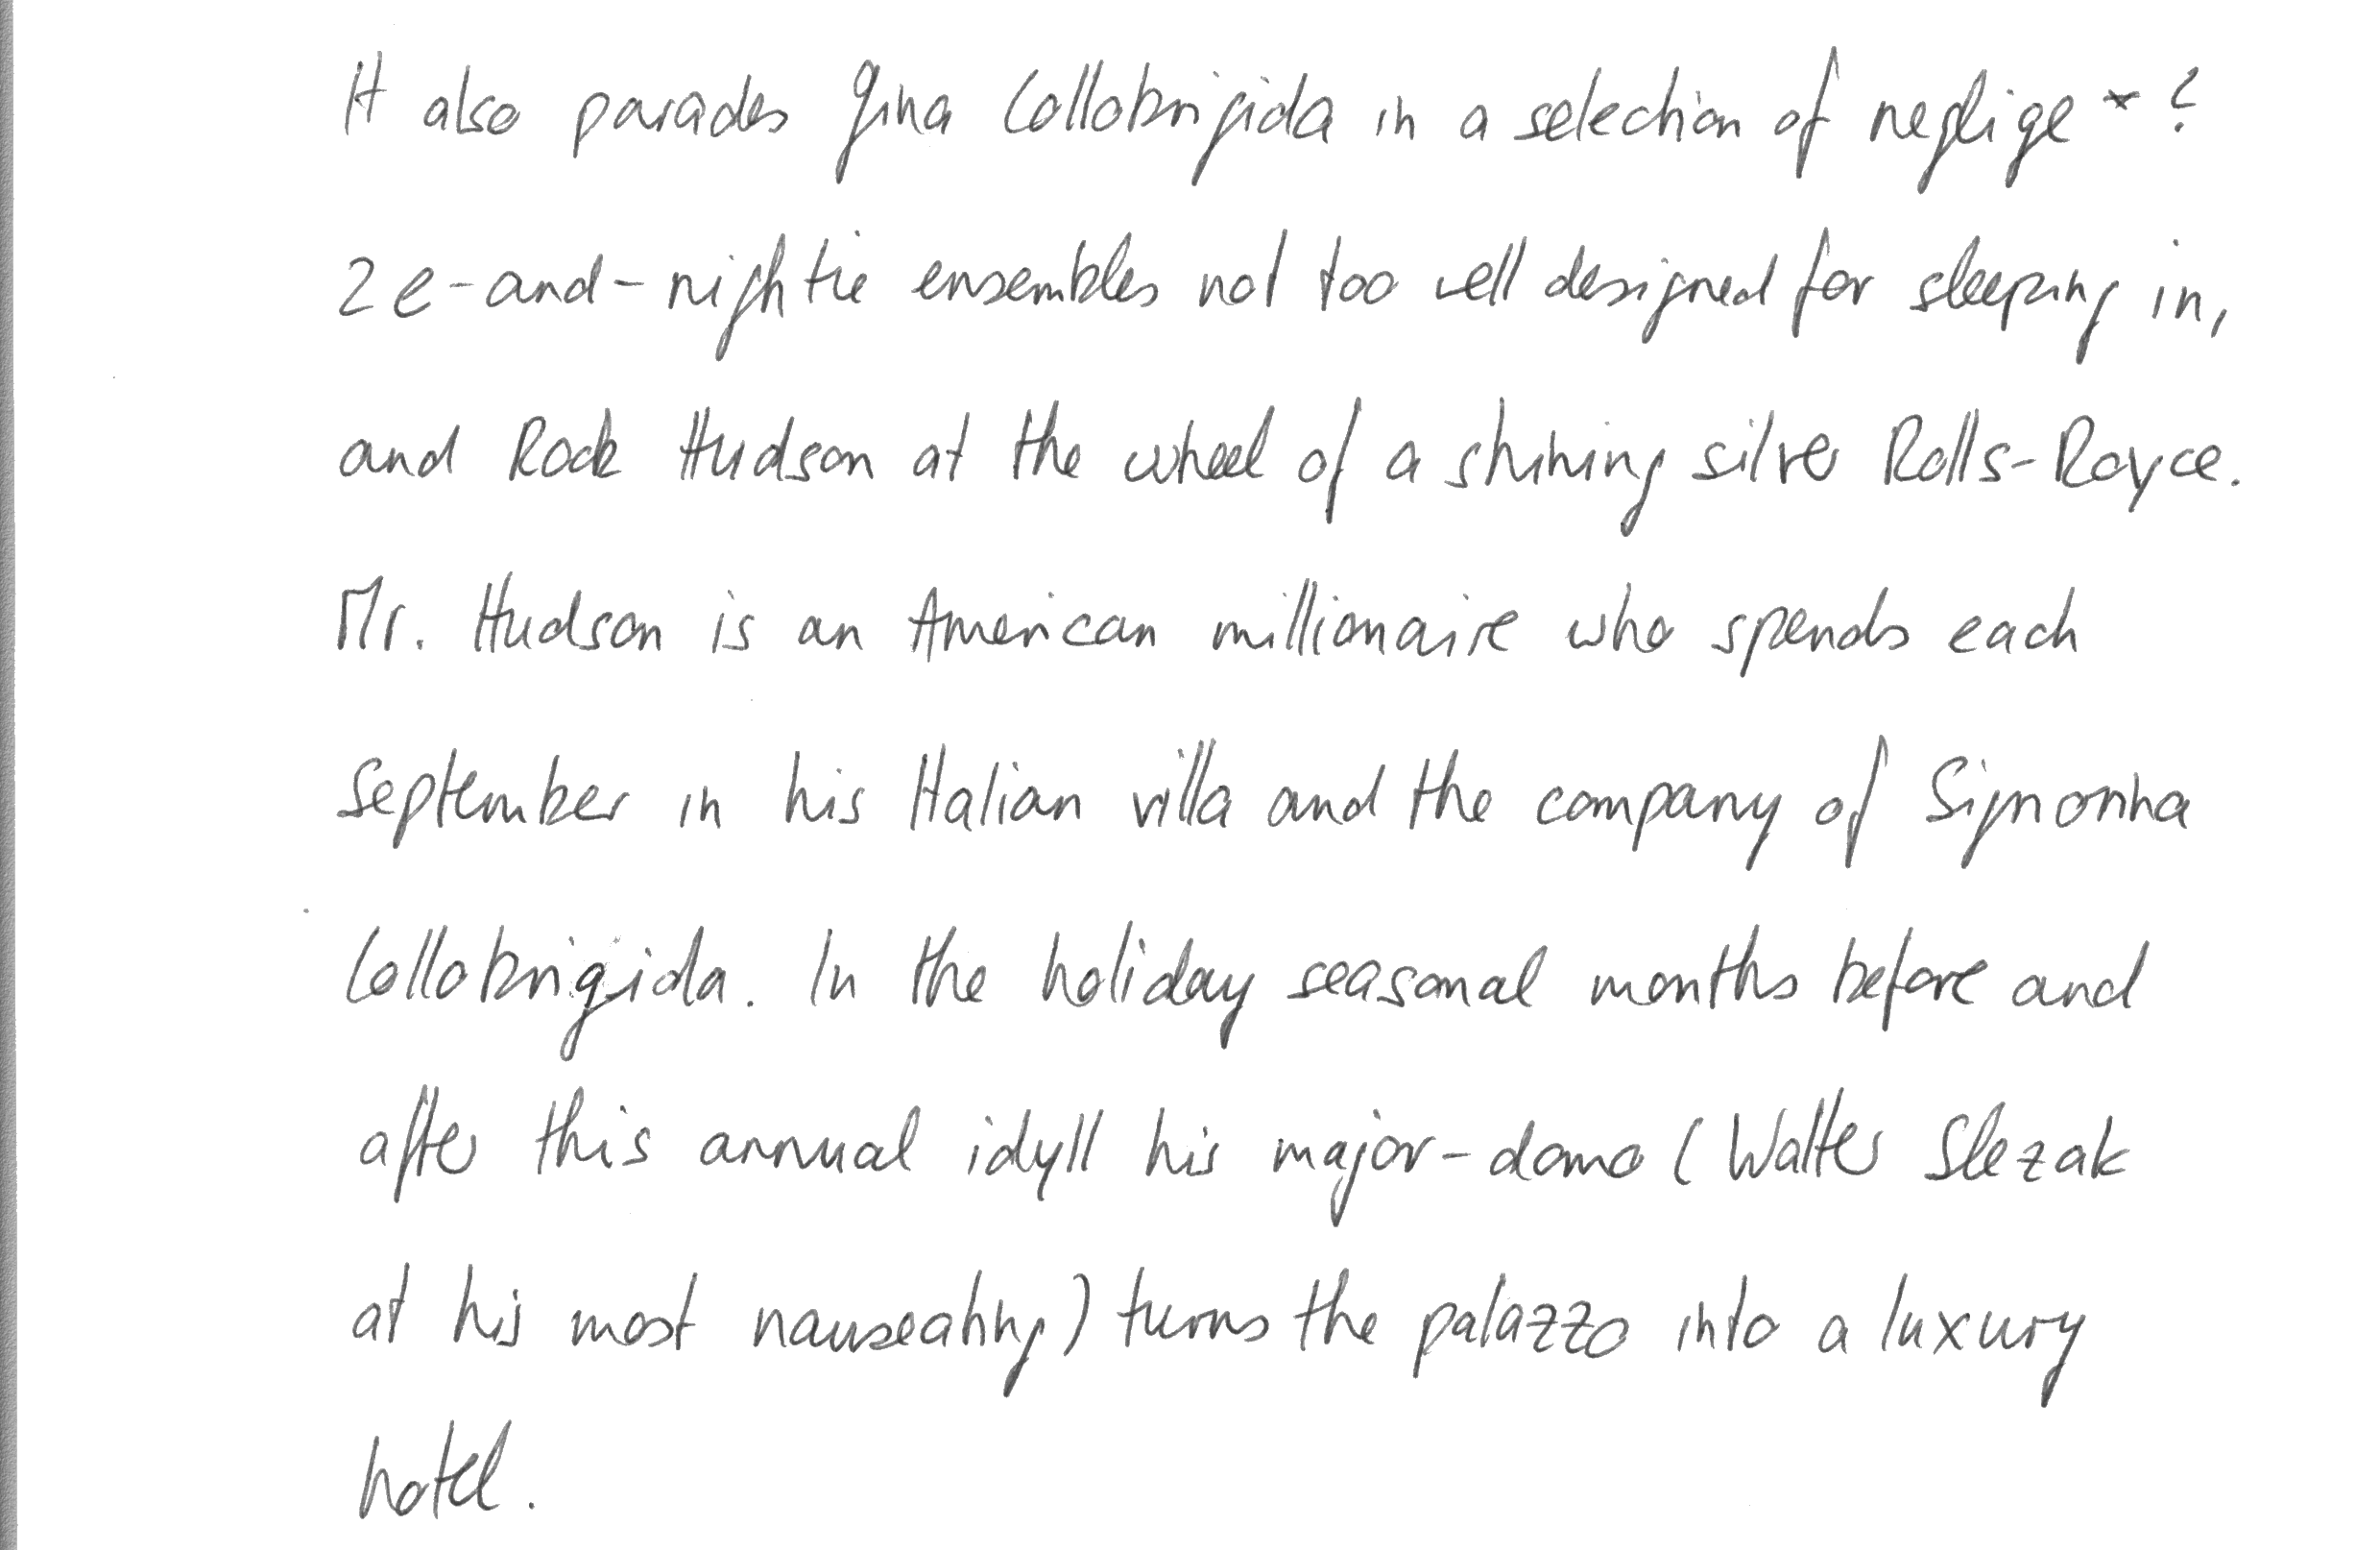 It also parades Gina Lollobrigida in a selection of neglige *?
2e-and-nightie ensembles not too well designed for sleeping in,
and Rock Hudson at the wheel of a shining silver Rolls-Royce.
Mr. Hudson is an American millionaire who spends each
September in his Italian villa and the company of Signorina
Lollobrigida. In the holiday seasonal months before and
after this annual idyll his major-domo (Walter Slezak
at his most nauseating) turns the palazzo into a luxury
hotel.